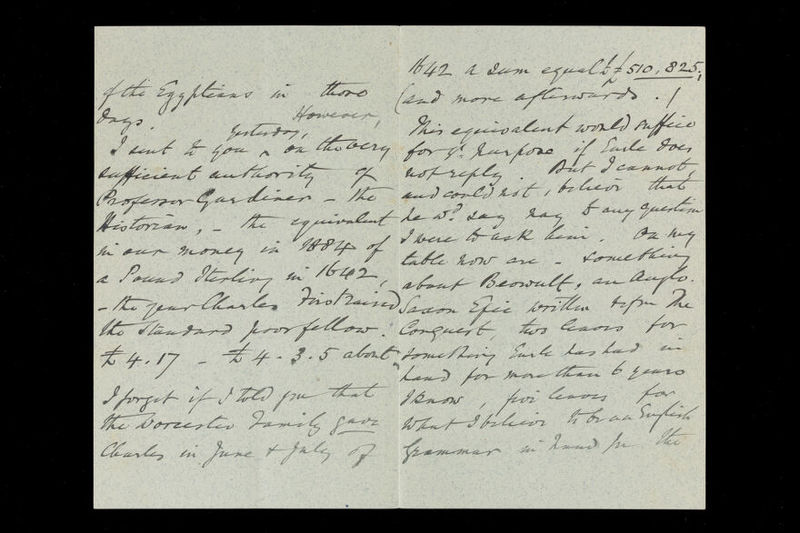 of the Egyptians in those
days. However,
yesterday,
I sent to you ^ on the very
sufficient authority of
Professor Gardiner – the
Historian, – the equivalent
in our money in 1884 of
a Pound Sterling in 1642,
– the year Charles First raised
the Standard poor fellow.
£4.17 – £4.3.5 about
I forget if I told you that
the Worcester Family gave
Charles in June & July of
1642 a sum equal to £510,825;
(and more afterwards.)
This equivalent would suffice
for yr. purpose if Earle does
not reply. But I cannot,
and could not, believe that
he wd. say nay to any question
I were to ask him. On my
table now are – something
about Beowulf, an Anglo.
Saxon Epic written before The
Conquest, two leaves for
something Earle has had in
hand for more than 6 years
I know, five leaves for
what I believe to be an English
Grammar in hand for the